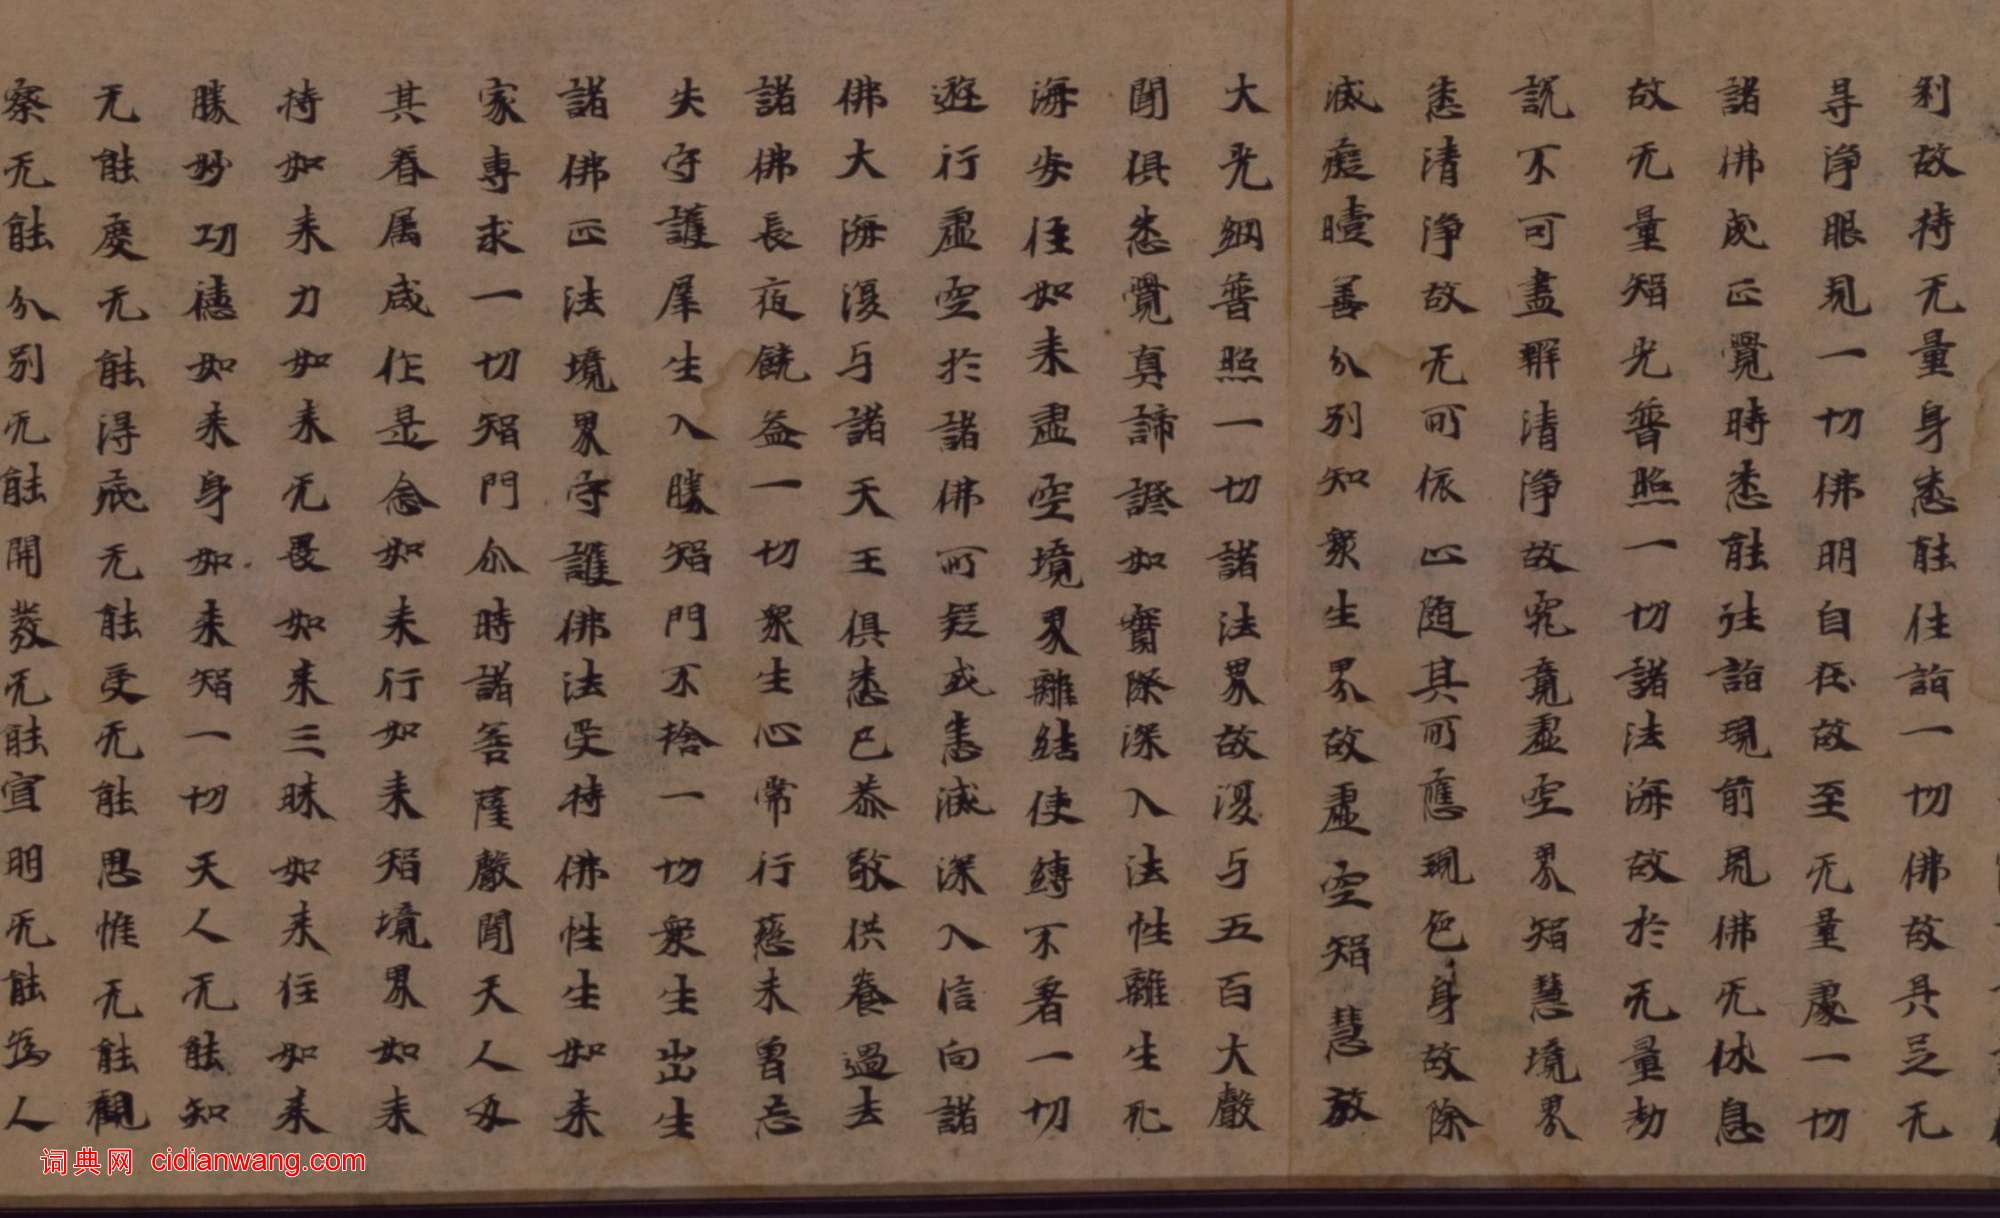 刹故持无量身悉能住詣一切佛故具足无
㝵淨眼見一切佛明自在故至无量處一切
諸佛成正覺時悉能往詣現前見佛无休息
故无量智光普照一切諸法海故於无量劫
說不可盡辯清淨故究竟虛空界智慧境界
悉清淨故无所依止随其所應現色身故除
滅癡曀善分別知衆生界故虛空智慧放
大光網普照一切諸法界故復与五百大聲
聞俱悉覺真諦證如實際深入法性離生死
海步住如来虛空境界離結使縛不著一切
遊行虛空於諸佛所疑惑悉滅深入信向諸
佛大海復与諸天王俱悉已恭敬供養過去
諸佛長夜饒益一切衆生心常行慈未曾忘
失守護羣生入勝智門不捨一切衆生出生
諸佛正法境界守護佛法受持佛性生如来
家專求一切智門尒時諸菩薩聲聞天人及
其眷属咸作是念如来行如来智境界如来
持如来力如来无畏如来三昧如来住如来
勝妙功德如来身如来智一切天人无能知
无能度无能得底无能受无能思惟无能觀
察无能分別无能開發无能宣明无能為人
词典网 cidianwang.com